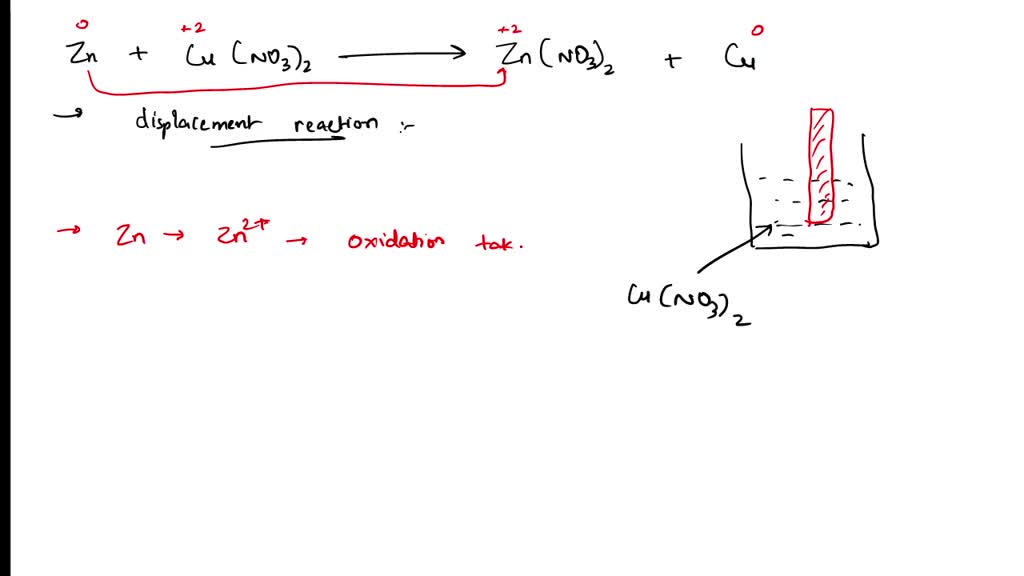 0 +2 +2 0
Zn + Cu (NO3)2 ⟶ Zn (NO3)2 + Cu
→ displacement reaction :-
→ Zn → Zn2+ → oxidation tak.
Cu (NO3)2